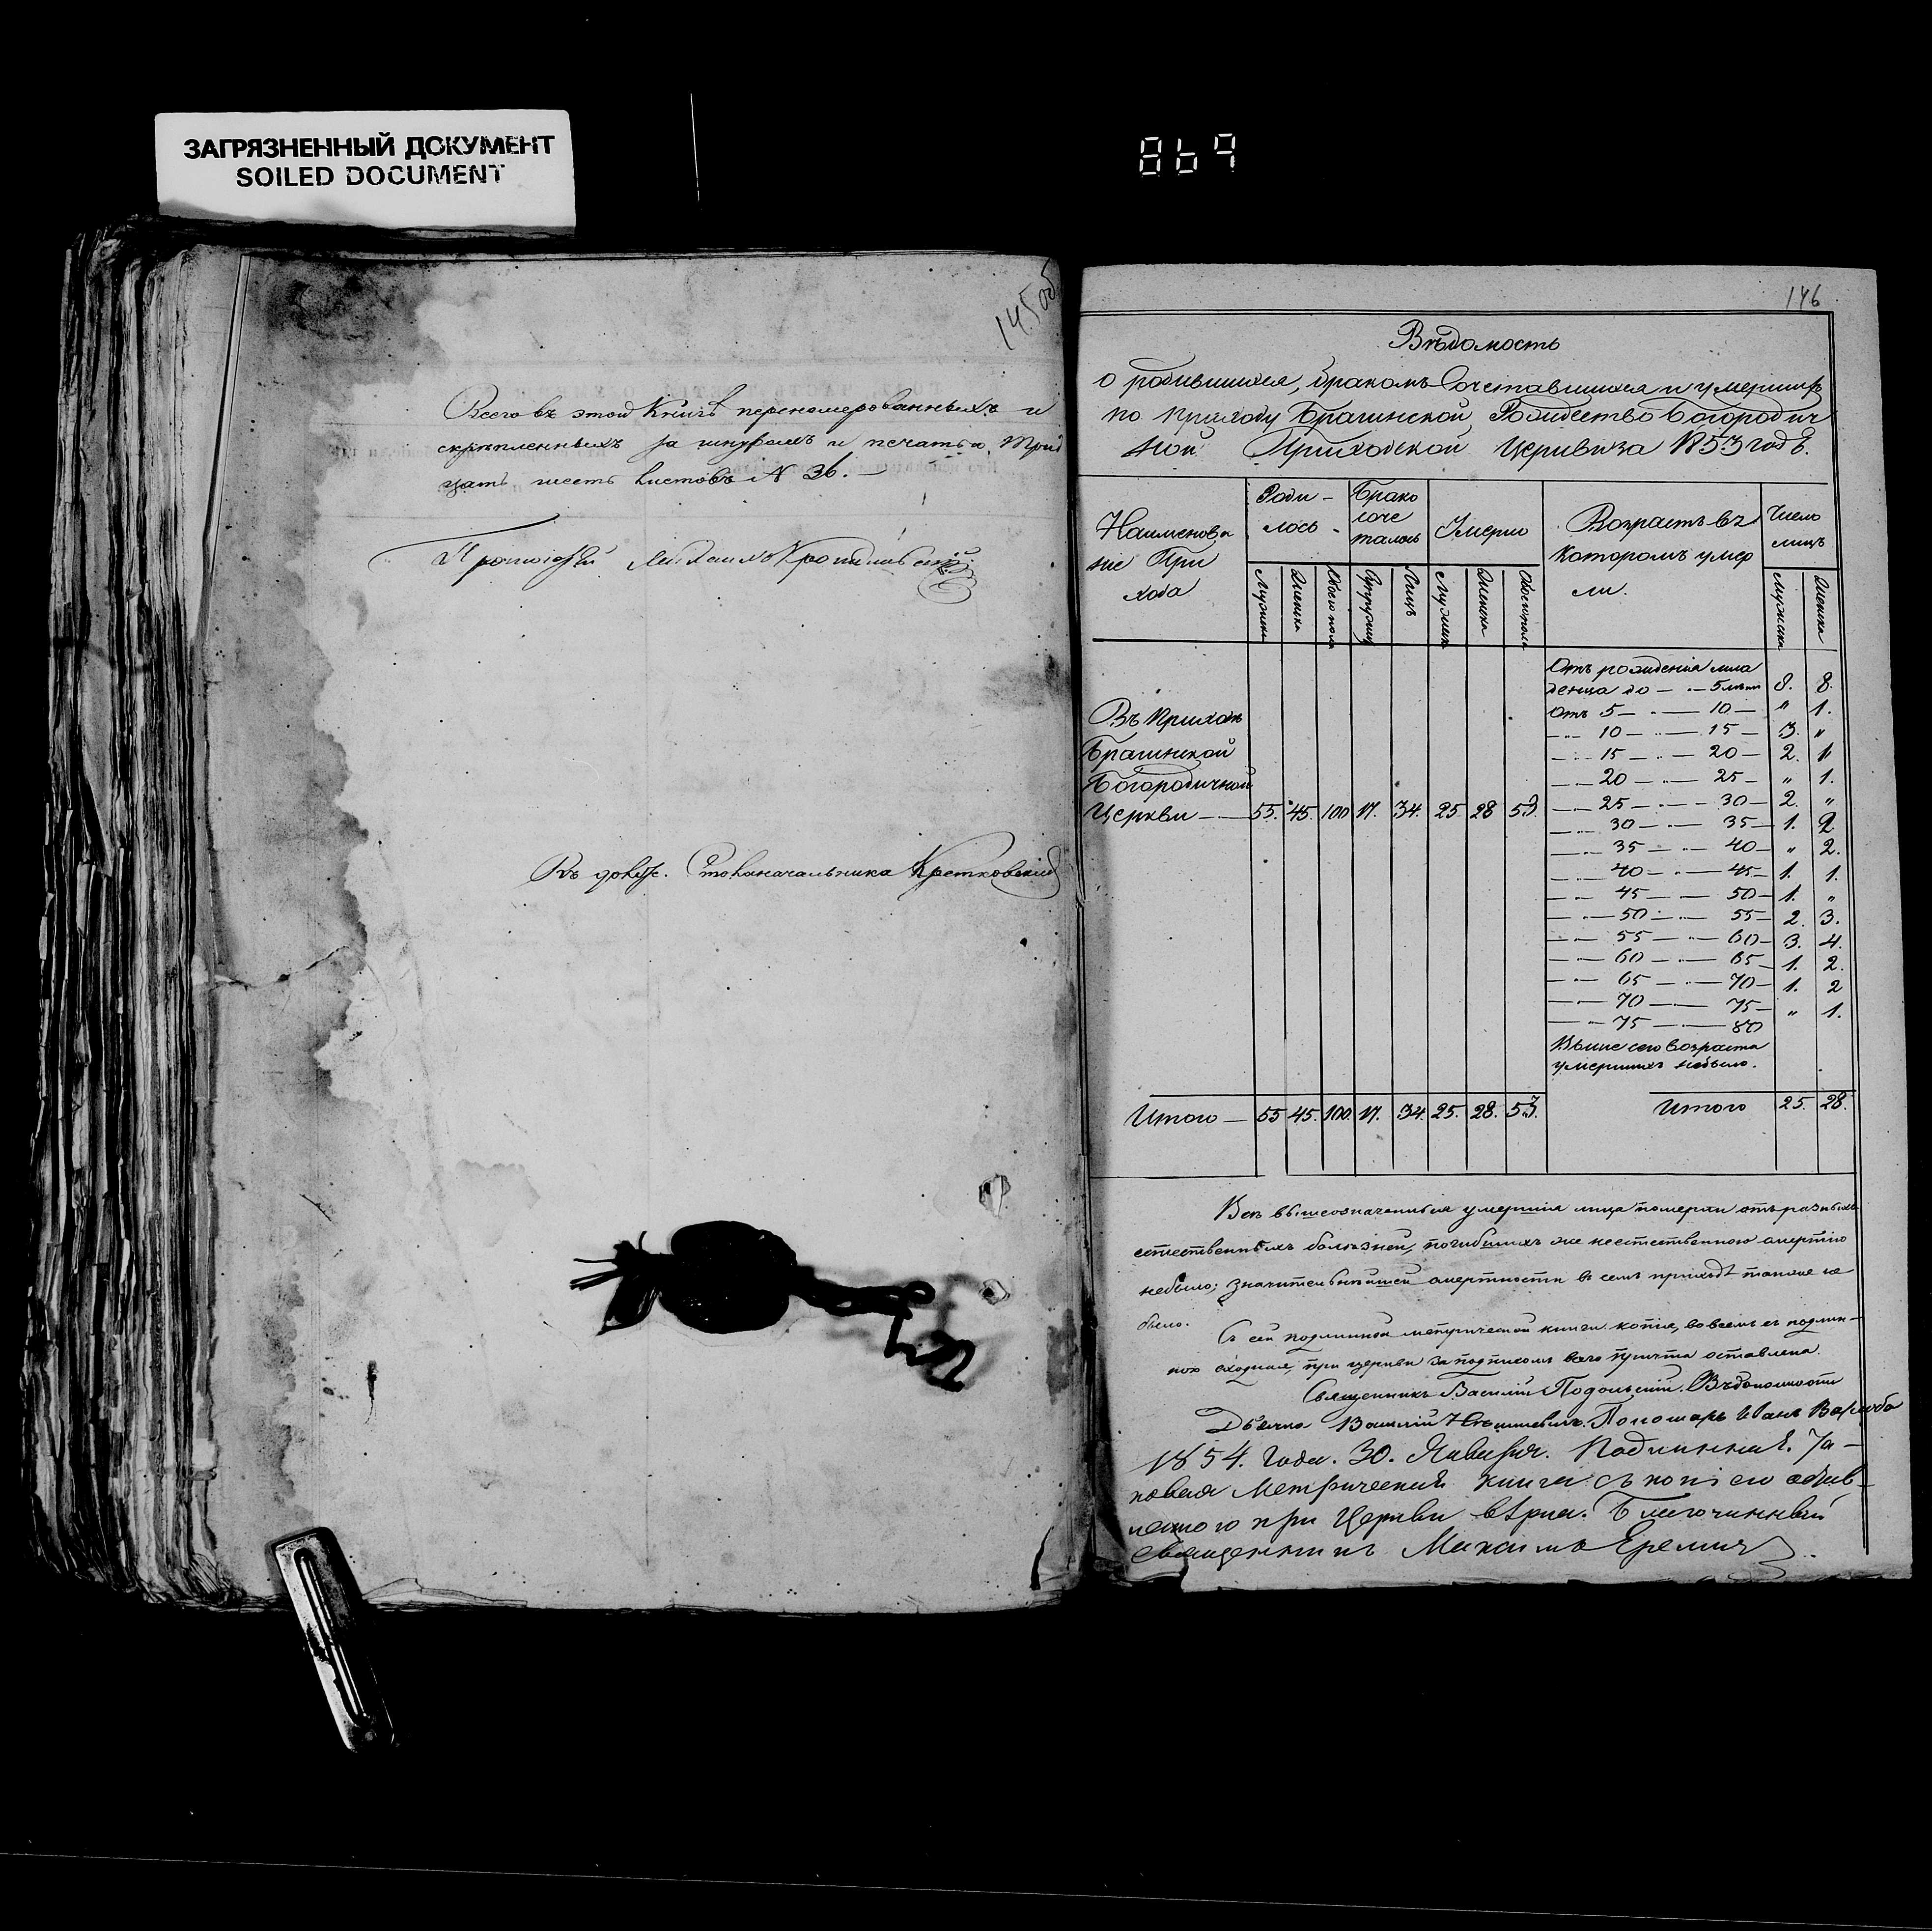 ЗАГРЯЗНЕННЫЙ ДОКУМЕНТ
SOILED DOCUMENT
869
145 об
Всего въ этой Книгѣ перенумерованныхъ и
скрѣпленныхъ за шнуромъ и печатью трид
цать шесть листовъ N 36.
Протоіерей Михаилъ
Въ долж. Столоначальника
146
Вѣдомость
о родившихся, бракомъ Сочетавшихся и умершихъ
по приходу Брагинской Рождество Богородич
ной Приходской Церкви за 1853 годъ.
Наименова
ніе При
хода
Роди-
лось-
Брако
соче
талось
Умерло
Возрастъ въ
Которомъ умер
ли.
Число
лицъ
Мужеска
Женска
Обоего пола
Супружес
Лицъ
Мужеск
Женска
Обоего пола
Мужеска
Женска
Отъ рожденія мла
денца до — 5 лѣтъ 8. 8.
Отъ 5 — 10 — " 1.
— 10 — 15 — 3. "
— 15 — 20 — 2. 1
— 20 — 25 — " 1.
— 25 — 30 — 2. "
— 30 — 35 — 1. 2.
— 35 — 40 — " 2.
— 40 — 45 — 1. 1.
— 45 — 50 — 1. "
— 50 — 55 — 2. 3.
— 55 — 60 — 3. 4.
— 60 — 65 — 1. 2.
— 65 — 70 — 1. 2
— 70 — 75 — " 1.
— 75 — 80
Выше сего возраста
умершихъ небыло.
Въ Приходѣ
Брагинской
Богородичной
Церкви — 55. 45. 100 17. 34. 25. 28 53.
Итого — 55 45. 100. 17. 34. 25. 28. 53.
Итого 25. 28.
Всѣ вышеозначенныя умершія лица померли отъ разныхъ
естественныхъ болѣзней, погибшихъ же неестественною смертію
небыло; значительнѣйшей смертности въ семъ приходѣ также не
было.
Съ сей подлинной метрической книги копія, во всемъ съ подлин-
ною сходная, при церкви за подписомъ всего причта оставлена.
Священникъ Василій Подольскій.
Дьячко Василій Пономарь Иванъ
1854. Года. 30. Января. Подлинная.
Метрическая книга съ копіею
при Церкви вѣрна. Благочинный
священникъ Максимъ Еремич